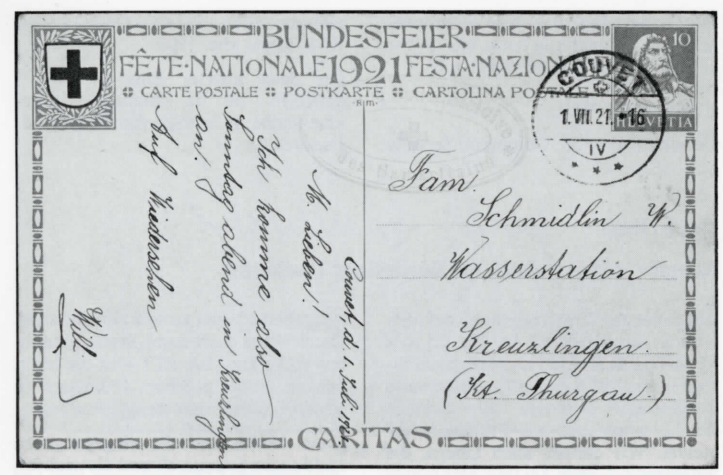 BUNDESFEIER
FÊTE·NATIONALE 1921 FESTA·NAZION
CARTE POSTALE :: POSTKARTE :: CARTOLINA POSTALE
10
HELVETIA
COUVET
1. VII. 21. - 16
IV
Couvet, d. 1. Juli 1921.
M. Lieben!
Ich komme also
Sonntag abend in Kreuzlingen
an.
Auf Wiedersehen
Willi
Fam.
Schmidlin W.
Wasserstation
Kreuzlingen.
(Kt. Thurgau.)
CARITAS